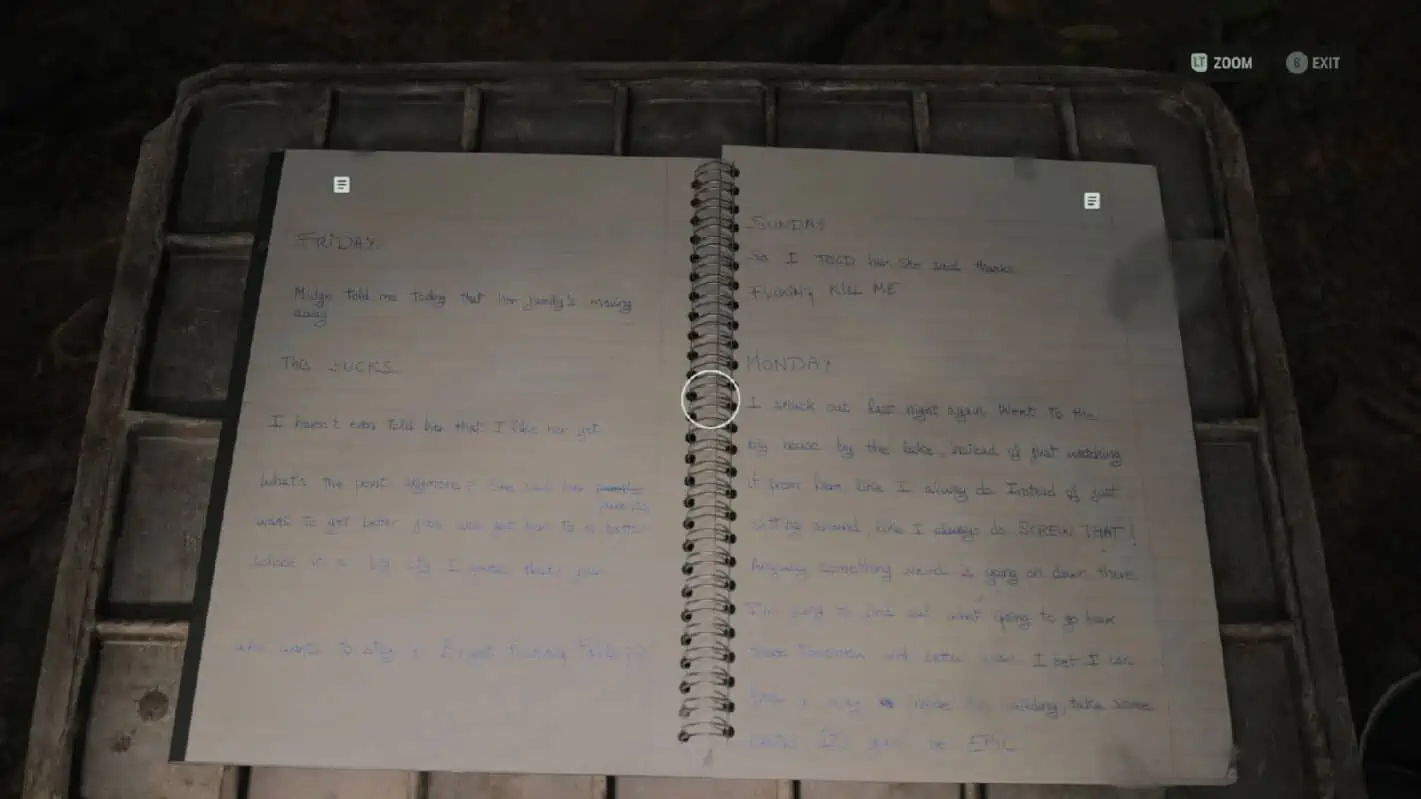 LT ZOOM
B EXIT
FRIDAY
Midge told me today that her family's moving
away
This SUCKS
I haven't even told her that I like her yet
What's the point anymore? She said her
parents
want to get better jobs and get her to a better
school in a big city I guess that's
who wants to stay in Bright Falls
SUNDAY
So I TOLD her she said thanks
FUCKING KILL ME
MONDAY
I snuck out last night again Went to the
big house by the lake, instead of just watching
it from here like I always do Instead of just
sitting around, like I always do SCREW THAT!
Anyway something weird is going on down there
I'm going to find out what Going to go back
I bet I can
find a way inside building, take some
EPIC